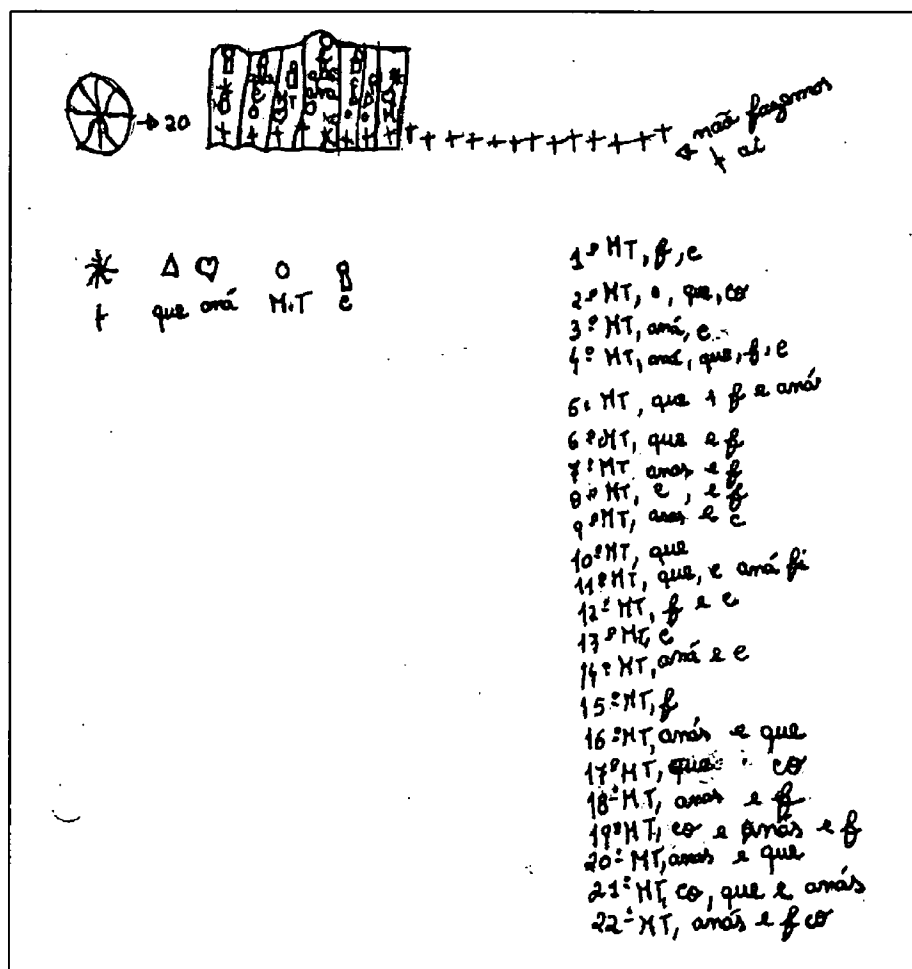 20
não fazemos
aí
que aná M.T C
1º MT, f, c
2º MT, o, que, co
3º MT, aná, c
4º MT, aná, que, f, c
5º MT, que f e anás
6º MT, que e f
7º MT anás e f
8º MT, c, e f
9º MT, anás e c
10º MT, que
11º MT, que, e aná fi
12º MT, f e c
13º MT, c
14º MT, aná e c
15º MT, f
16º MT, anás e que
17º MT, que co
18º MT, anás e f
19º MT, co e anás e f
20º MT, anás e que
21º MT, co, que e anás
22º MT, anás e f co